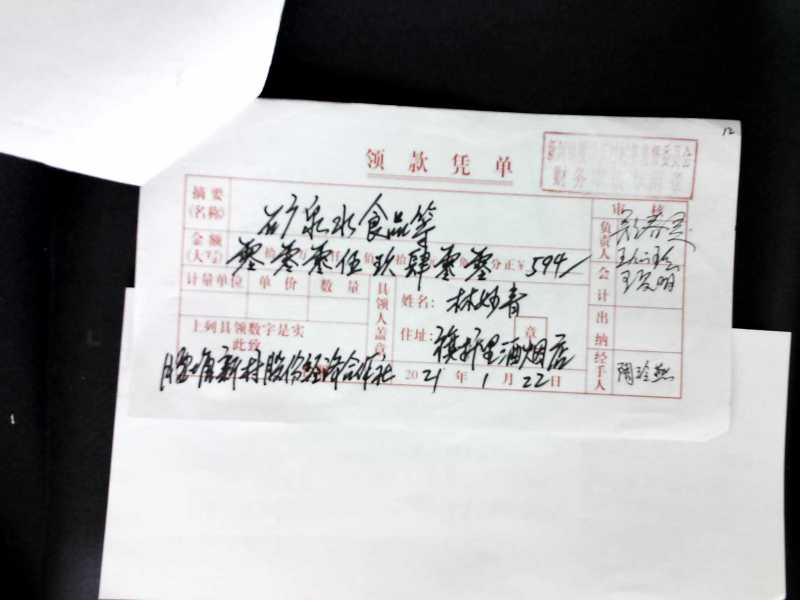 12
领款凭单
财务
摘要 (名称) 矿泉水食品等
审核
金额 (大写) 零零零伍玖肆零零 分正¥ 594/
负责人
计量单位 单价 数量 具领人盖章 姓名: 林妙青
会计
上列具领数字是实 住址: 旗杆里酒烟店 章
出纳
此致
新村股份经济合作社 2021年1月22日
经手人 陶玲燕